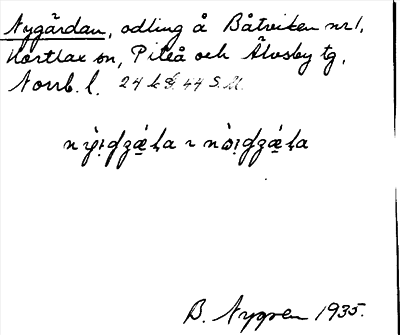 Nygärdan, odling å Båtviken nr 1,
Hortlax sn, Piteå och Älvsby tg,
Norrb. l. 24 k S. 44 S.M.
B. Nygren 1935.